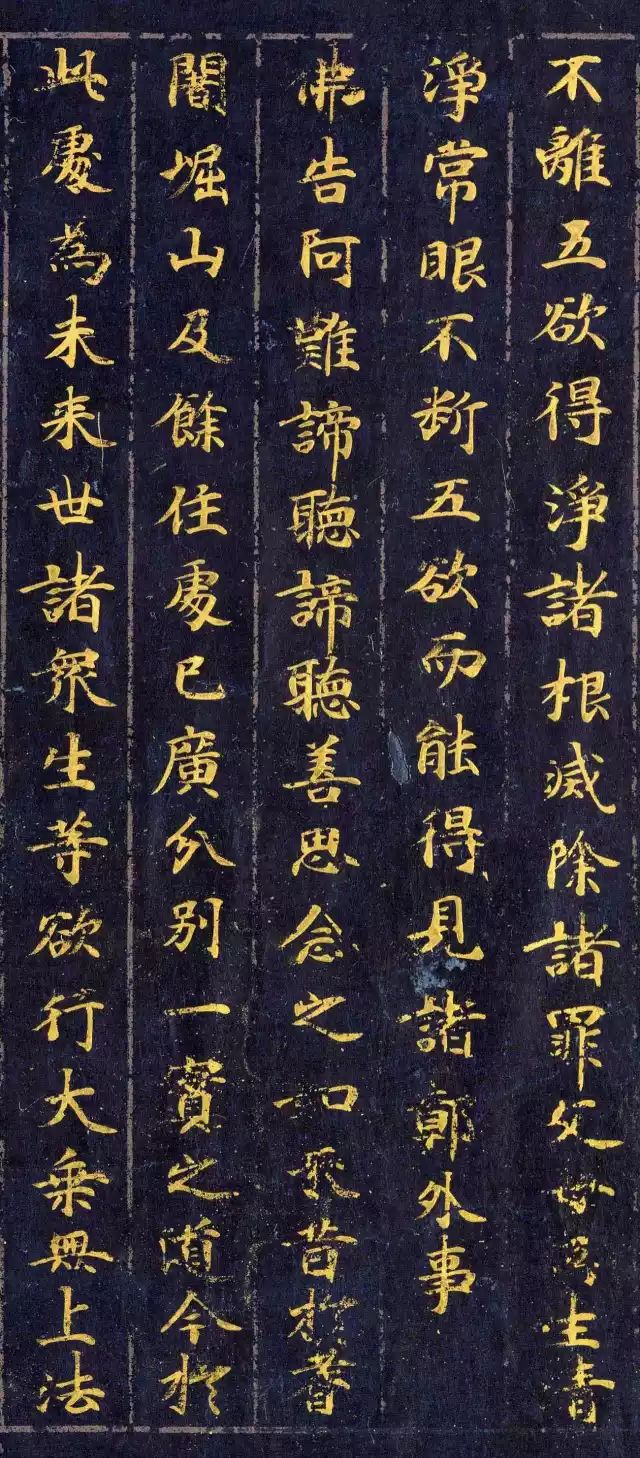 不離五欲得淨諸根滅除諸罪父母所生清
淨常眼不断五欲而能得見諸鄣外事
佛告阿難諦聴諦聴善思念之如来昔於耆
闍崛山及餘住處已廣分別一實之道今於
此處為未来世諸衆生等欲行大乗無上法